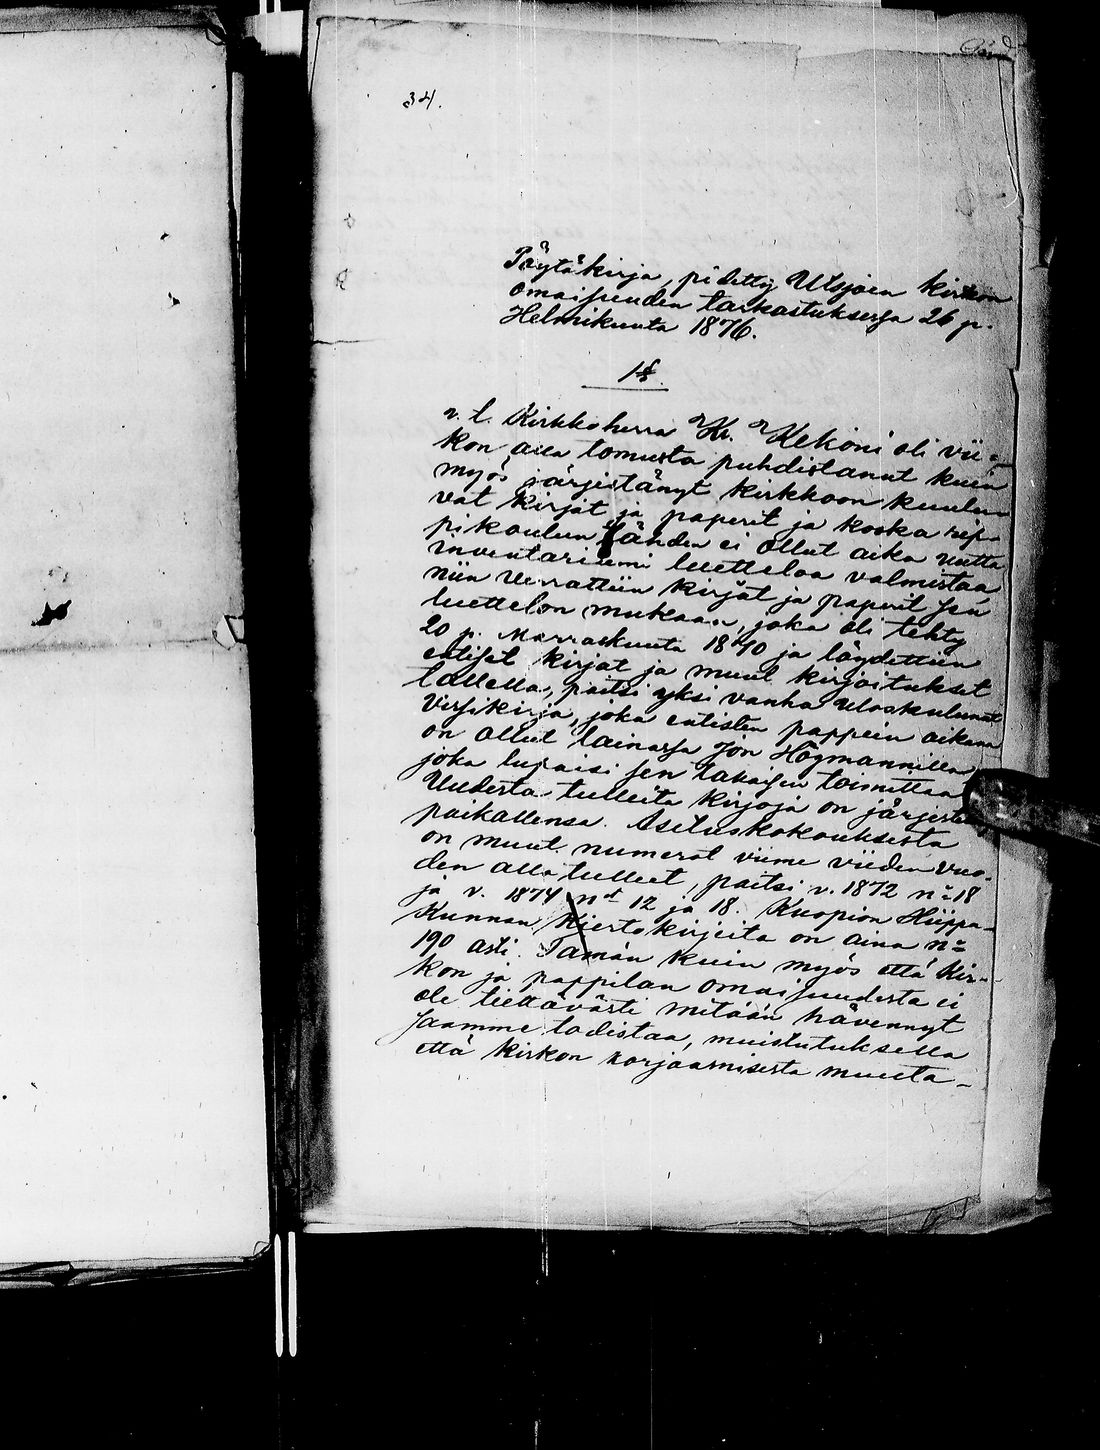 34.
Pöytäkirja, pidetty Utsjoen kirkon
omaisuuden tarkastuksessa 26 p.
Helmikuuta 1876.
1§.
v. t. Kirkkoherra Kr. Kekoni oli vii-
kon alla tomusta puhdistanut kuin
myös järjestänyt kirkkoon kuulu-
vat kirjat ja paperit ja koska rip-
pikoulun tähden ei ollut aika uutta
inventariumi luetteloa valmistaa
niin verrattiin kirjat ja paperit sen
luettelon mukaan, joka oli tehty
20 p. Marraskuuta 1870 ja löydettiin
entiset kirjat ja muut kirjoitukset
tallella, paitsi yksi vanha uloskulunut
virsikirja, joka entisten pappein aikana
on ollut lainassa Jon Högmannilla
joka lupaisi sen takaisin toimittaa
Uudesta tulleita kirjoja on järjestetty
paikallensa. Asetuskokouksesta
on muut numerot viime viiden vuo-
den alla tulleet, paitsi v. 1872 nº 18
ja v. 1874 nº 12 ja 18. Kuopion Hiippa-
Kunnan Kiertokirjeita on aina nº
190 asti. Tämän kuin myös että Kir-
kon ja pappilan omaisuudesta ei
ole tiettävästi mitään hävennyt
saamme todistaa, muistutuksella
että kirkon korjaamisesta muuta-